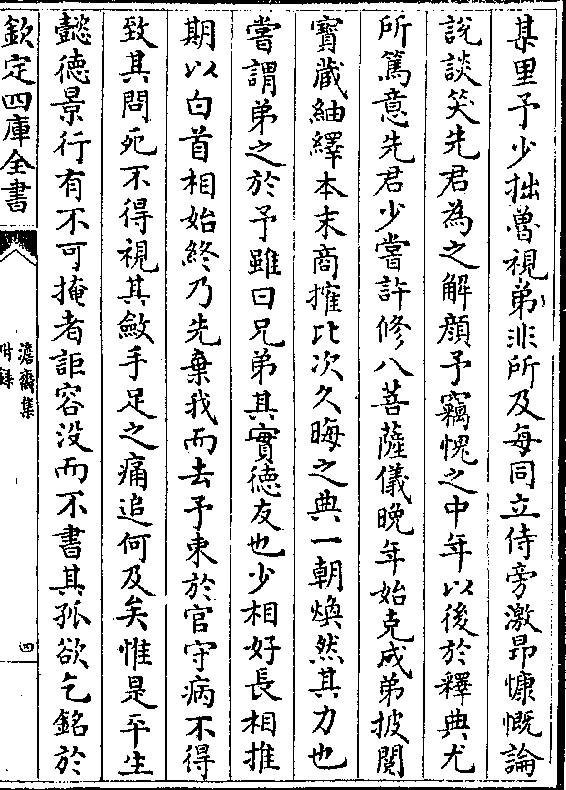 某里予少拙魯視弟非所及每同立侍旁激昂慷慨論
說談笑先君為之解顔予竊愧之中年以後於釋典尤
所篤意先君少嘗許修八菩薩儀晚年始克成弟披閱
寶藏紬繹本末商搉比次久晦之典一朝煥然其力也
嘗謂弟之於予雖曰兄弟其實德友也少相好長相推
期以白首相始終乃先棄我而去予束於官守病不得
致其問死不得視其斂手足之痛追何及矣惟是平生
懿德景行有不可掩者詎容没而不書其孤欲乞銘於
欽定四庫全書
澹齋集
附錄
四